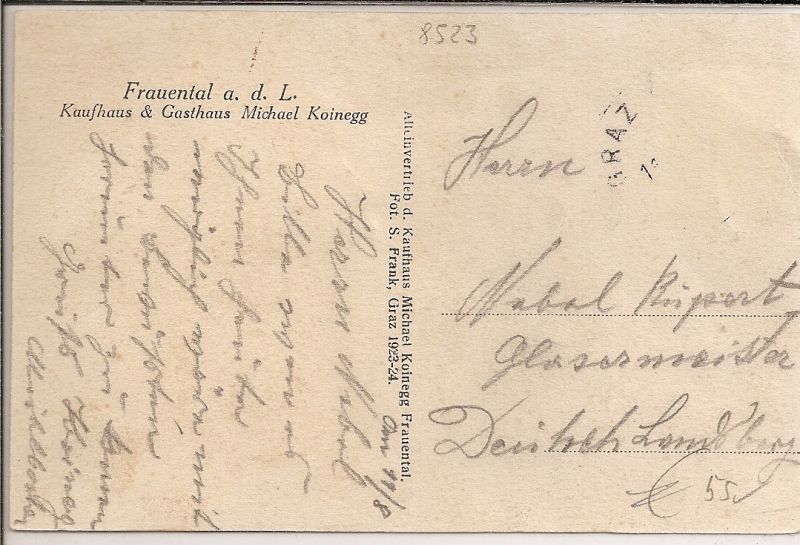 8523
Frauental a. d. L.
Kaufhaus & Gasthaus Michael Koinegg
Alleinvertrieb d. Kaufhaus Michael Koinegg Frauental.
Fot. S. Frank, Graz 1923-24.
GRAZ
1.
Am 19/8
Herrn Nebel
Bitte wenn es
Ihnen heute
möglich wäre mit
den
zu
Grüßt
Herrn
Nebel Rupert
Glasermeister
Deutsch Landsberg
€ 55.-